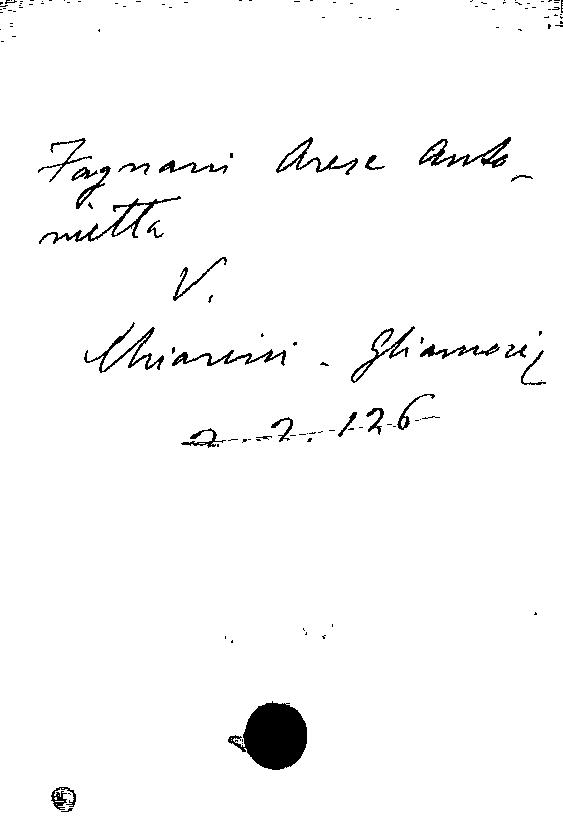 Fagnani Arese Anto-
nietta
V.
Chiarini - Gli amori,
2. 2. 126